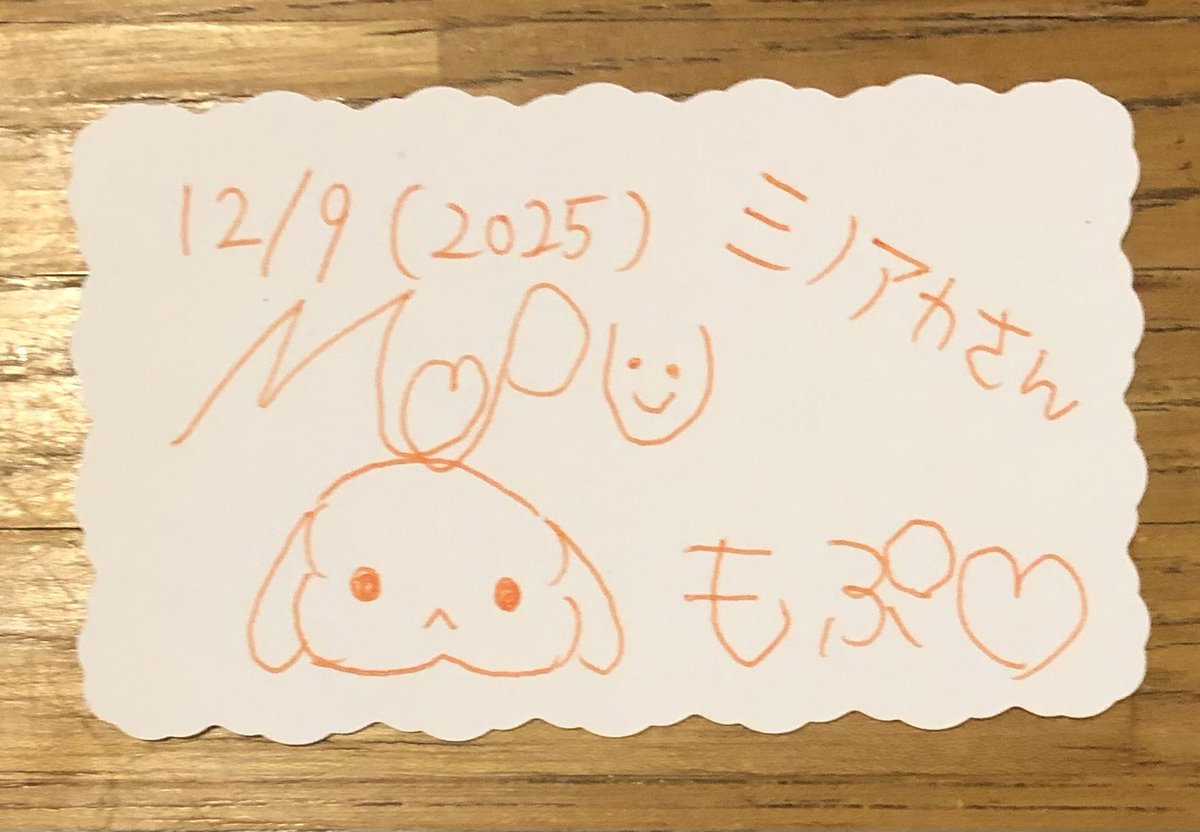 12/9(2025)
ミノアカさん
MOPU
もぷ♡